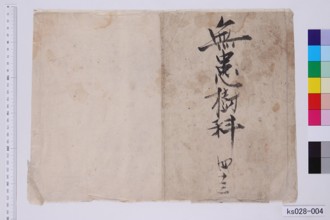 無患樹科
四十三
ks028-004